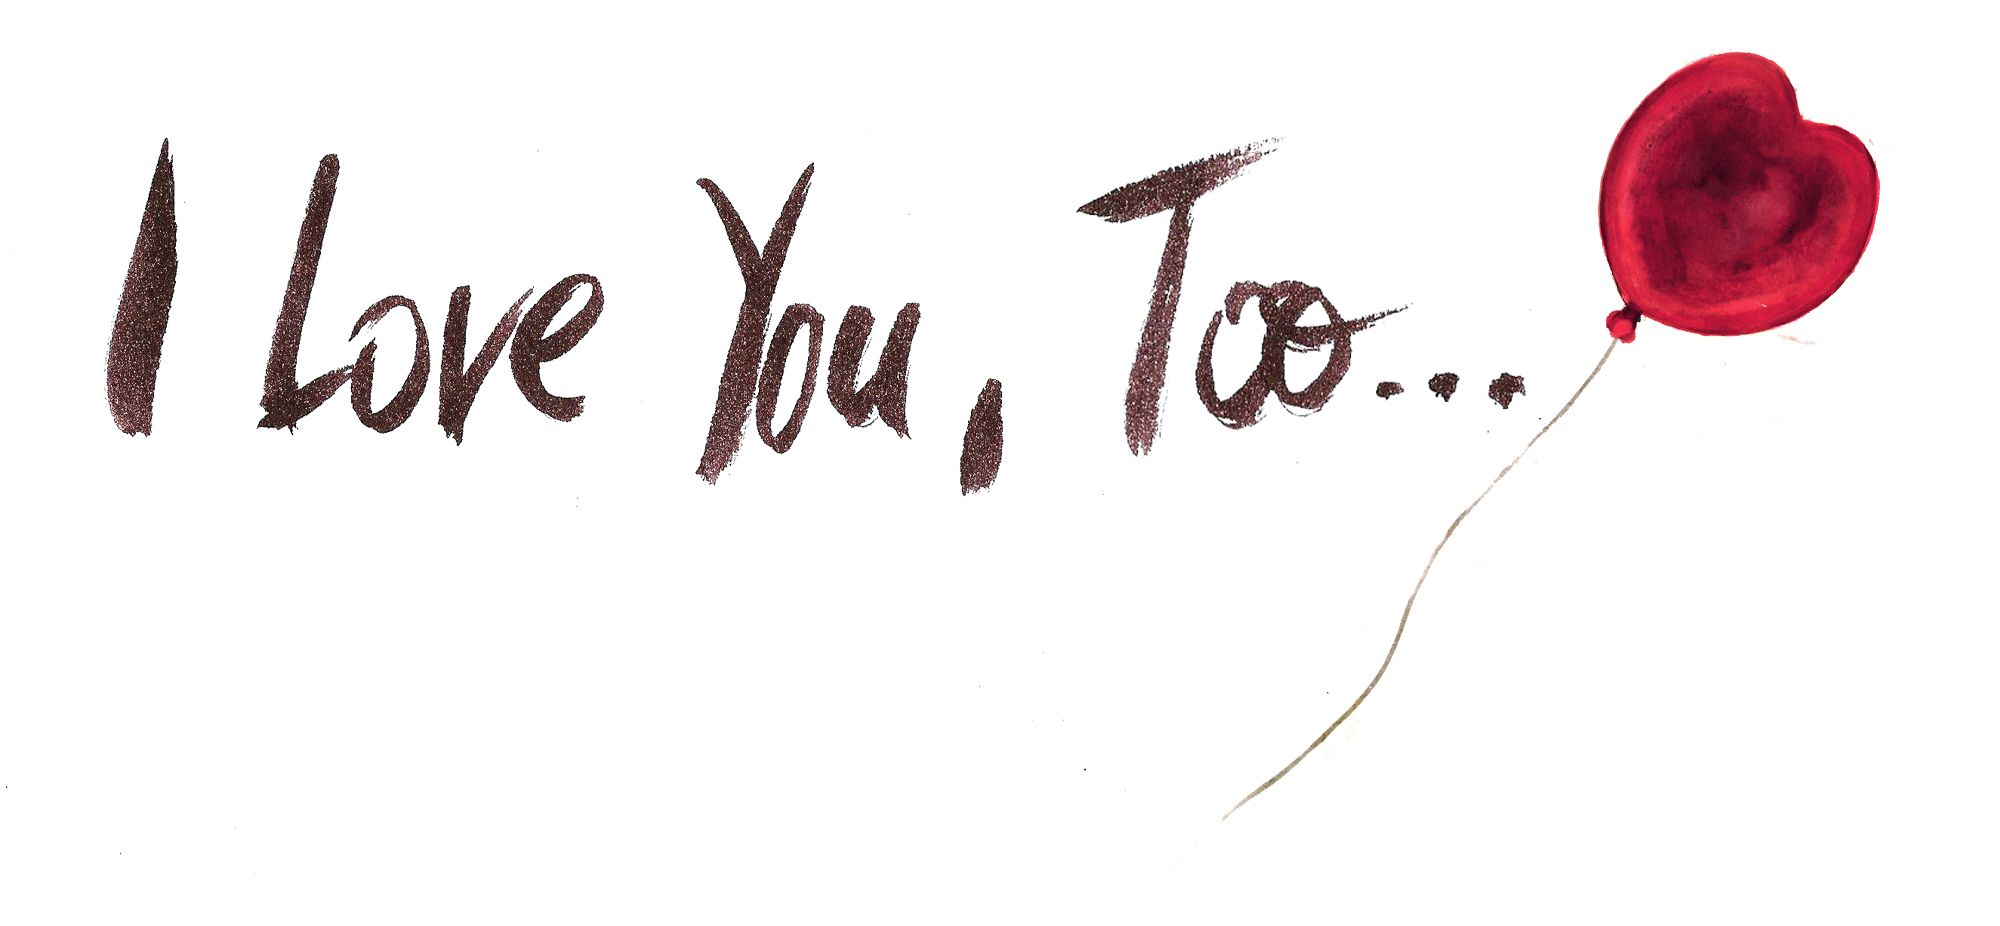 I Love You, Too...